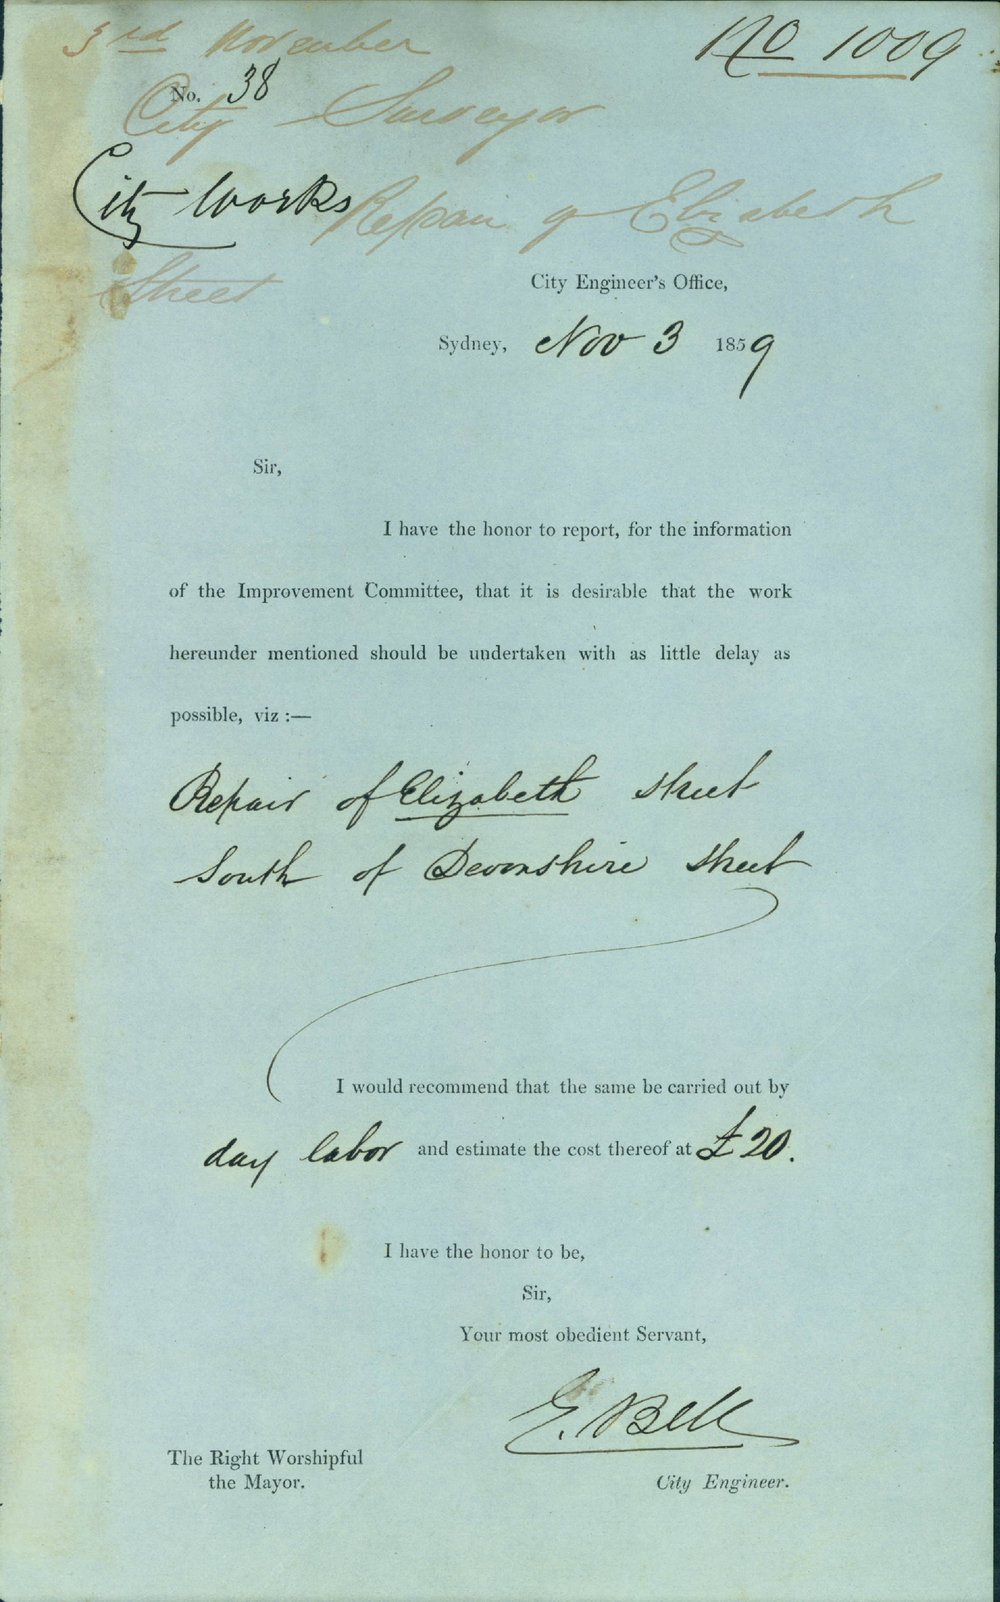 3rd November
No 1009
No. 38
City Surveyor
City Works
Repair of Elizabeth
Street
City Engineer's Office,
Sydney, Nov 3 1859
Sir,
I have the honor to report, for the information
of the Improvement Committee, that it is desirable that the work
hereunder mentioned should be undertaken with as little delay as
possible, viz :—
Repair of Elizabeth street
South of Devonshire street
I would recommend that the same be carried out by
day labor and estimate the cost thereof at £20.
I have the honor to be,
Sir,
Your most obedient Servant,
E. Bell
The Right Worshipful
the Mayor.
City Engineer.